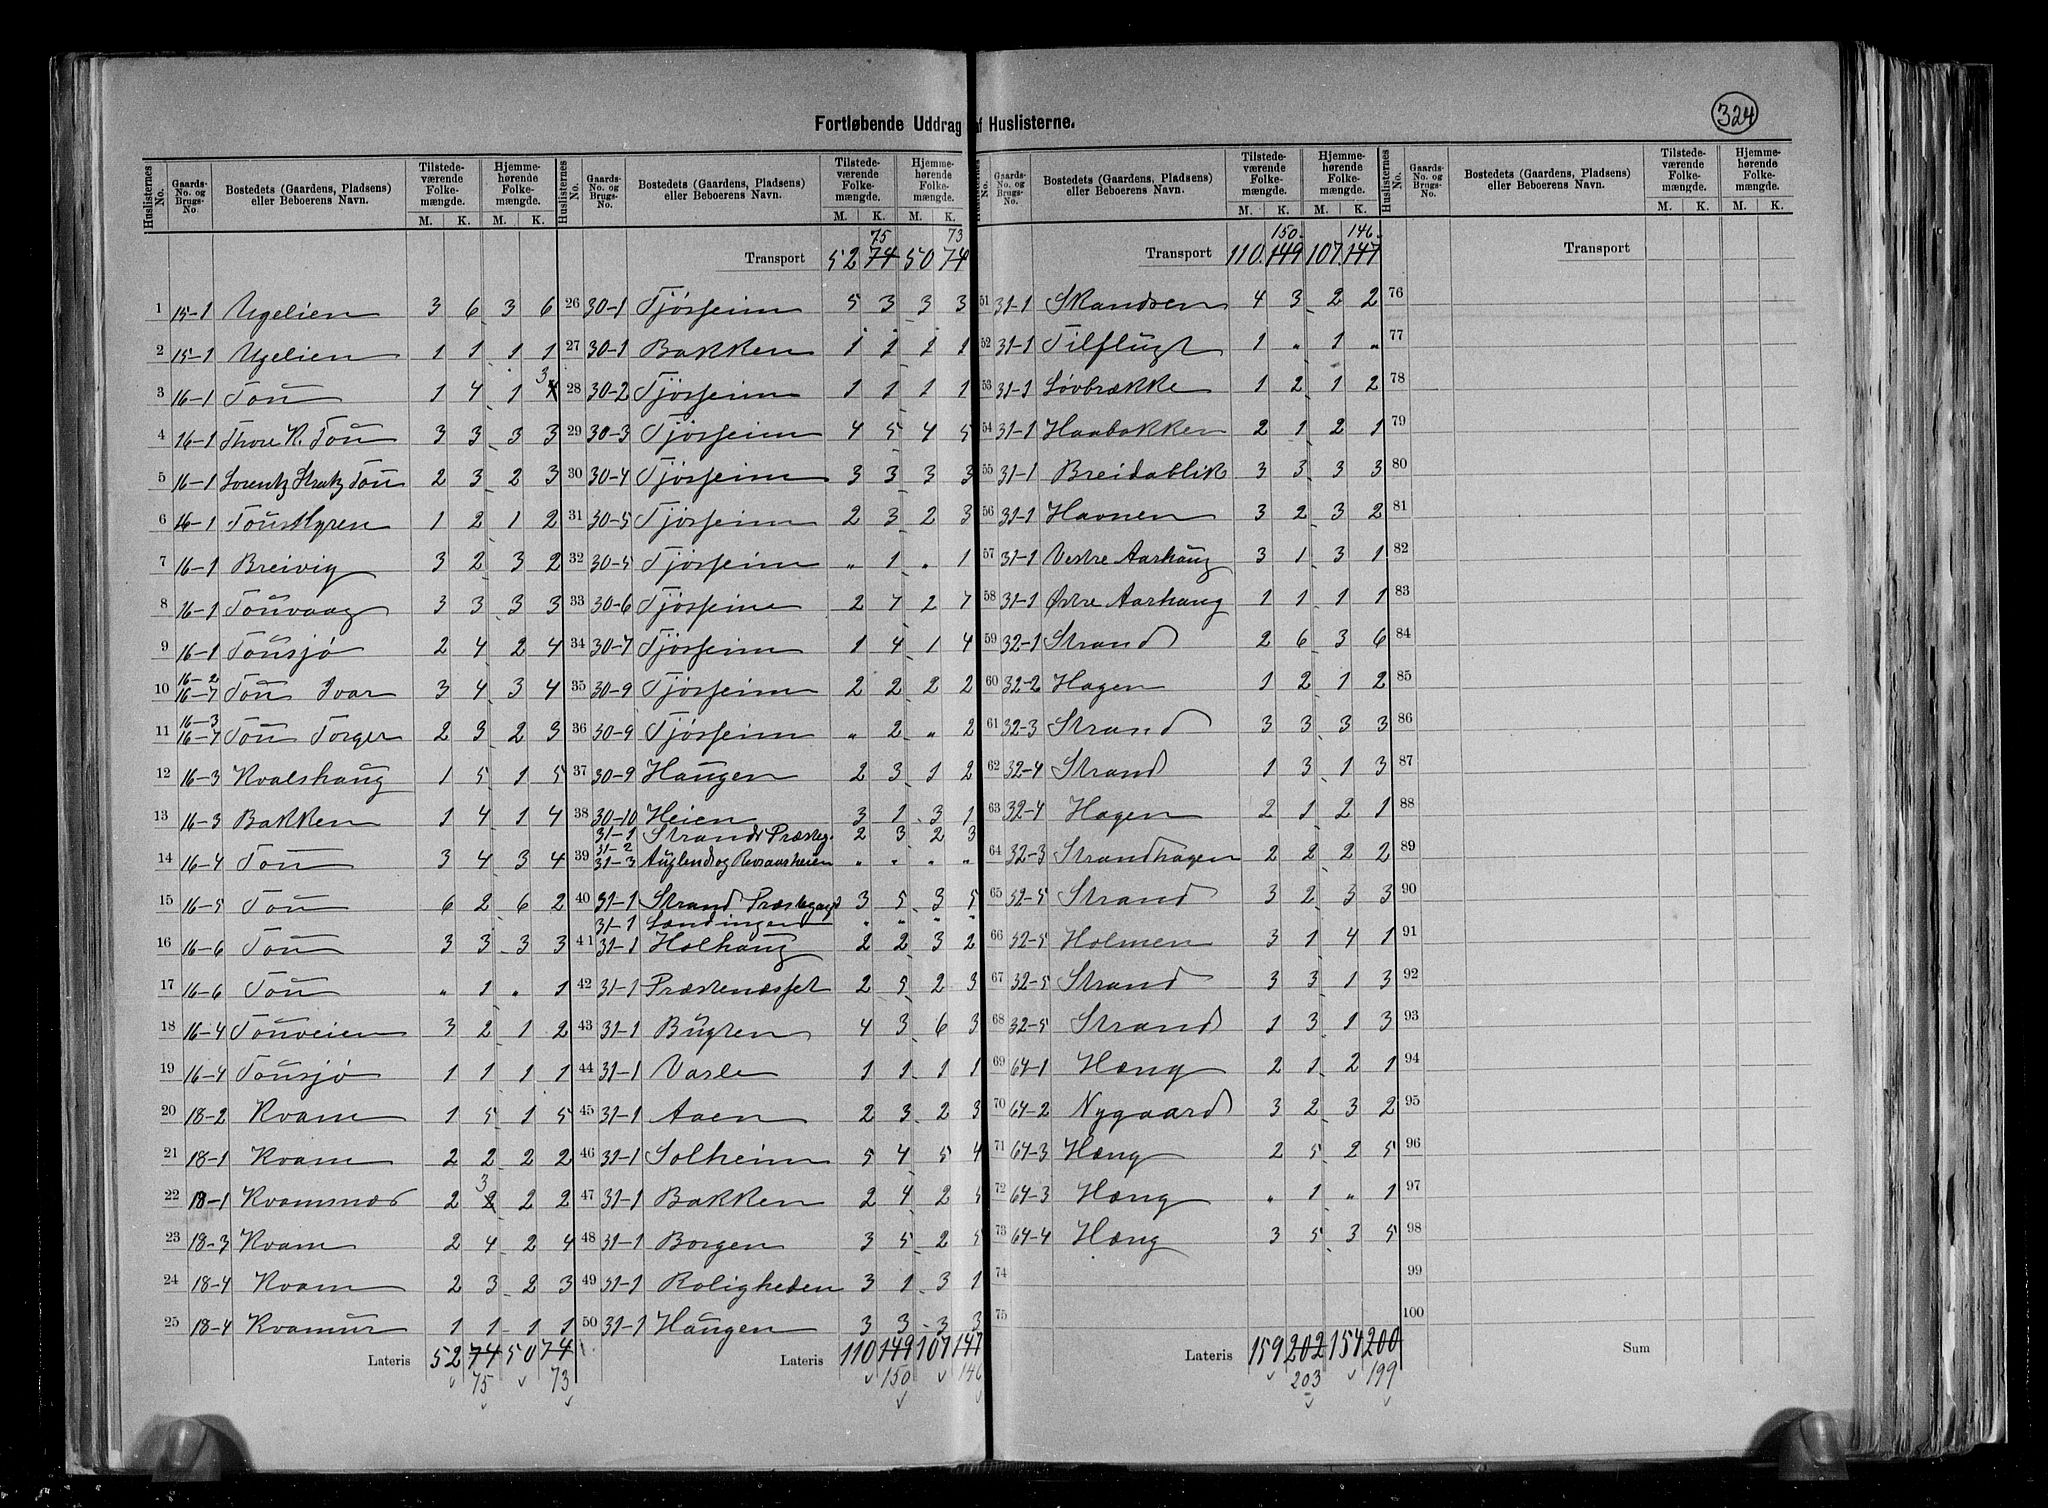 324
Fortløbende Uddrag af Huslisterne.
Huslisternes No. Gaards-No. og Brugs-No. Bostedets (Gaardens, Pladsens) eller Beboerens Navn. Tilstedeværende Folkemængde. M. K. Hjemmehørende Folkemængde. M. K.
1 15-1 Ugelien 3 6 3 6
2 15-1 Ugelien 1 1 1 1
3 16-1 Tou 1 4 1 3 4
4 16-1 Thore K. Tou 3 3 3 3
5 16-1 Lorentz Kratz Tou 2 3 2 3
6 16-1 Tou Myren 1 2 1 2
7 16-1 Breivig 3 2 3 2
8 16-1 Touvaag 3 3 3 3
9 16-1 Tousjø 2 4 2 4
10 16-2 16-7 Tou Ivar 3 4 3 4
11 16-3 16-7 Tou Torger 2 3 2 3
12 16-3 Kvalshaug 1 5 1 5
13 16-3 Bakken 1 4 1 4
14 16-4 Tou 3 4 3 4
15 16-5 Tou 6 2 6 2
16 16-6 Tou 3 3 3 3
17 16-6 Tou " 1 " 1
18 16-4 Touveien 3 2 1 2
19 16-4 Tousjø 1 1 1 1
20 18-2 Kvam 1 5 1 5
21 18-1 Kvam 2 2 2 2
22 18-1 Kvamsnæs 2 3 2 2 2
23 18-3 Kvam 2 4 2 4
24 18-4 Kvam 2 3 2 3
25 18-4 Kvamur 1 1 1 1
Lateris 52 74 50 74
75 73
Huslisternes No. Gaards-No. og Brugs-No. Bostedets (Gaardens, Pladsens) eller Beboerens Navn. Tilstedeværende Folkemængde. M. K. Hjemmehørende Folkemængde. M. K.
75 73
Transport 52 74 50 74
26 30-1 Tjösseim 5 3 3 3
27 30-1 Bakken 1 1 1 1
28 30-2 Tjösseim 1 1 1 1
29 30-3 Tjösseim 4 5 4 5
30 30-4 Tjösseim 3 3 3 3
31 30-5 Tjösseim 2 3 2 3
32 30-5 Tjösseim " 1 " 1
33 30-6 Tjösseim 2 7 2 7
34 30-7 Tjösseim 1 4 1 4
35 30-9 Tjösseim 2 2 2 2
36 30-9 Tjösseim " 2 " 2
37 30-9 Haugen 2 3 1 2
38 30-10 Heien 3 1 3 1
31-1 Strand Præsteg. 2 3 2 3
39 31-2 31-3 Auglend og Revaasheien " " " "
40 31-1 Strand Præstegagd 3 5 3 5
31-1 Lændingen " " " "
41 31-1 Holhaug 2 2 3 2
42 31-1 Præstenæsset 2 5 2 3
43 31-1 Bugten 4 3 6 3
44 31-1 Vasle 1 1 1 1
45 31-1 Aaen 2 3 2 3
46 31-1 Solheim 5 4 5 4
47 31-1 Bakken 2 4 2 5
48 31-1 Borgen 3 5 2 5
49 31-1 Roligheden 3 1 3 1
50 31-1 Haugen 3 3 3 3
Lateris 110 149 107 147
150 146
Huslisternes No. Gaards-No. og Brugs-No. Bostedets (Gaardens, Pladsens) eller Beboerens Navn. Tilstedeværende Folkemængde. M. K. Hjemmehørende Folkemængde. M. K.
150 146
Transport 110 149 107 147
51 31-1 Skandsen 4 3 2 2
52 31-1 Tilflugt 1 " 1 "
53 31-1 Løvbrække 1 2 1 2
54 31-1 Haabakken 2 1 2 1
55 31-1 Breidablik 3 3 3 3
56 31-1 Havnen 3 2 3 2
57 31-1 Vestre Aarhaug 3 1 3 1
58 31-1 Østre Aarhaug 1 1 1 1
59 32-1 Strand 2 6 3 6
60 32-2 Hagen 1 2 1 2
61 32-3 Strand 3 3 3 3
62 32-4 Strand 1 3 1 3
63 32-4 Hagen 2 1 2 1
64 32-3 Strandhagen 2 2 2 2
65 32-5 Strand 3 2 3 3
66 32-5 Holmen 3 1 4 1
67 32-5 Strand 3 3 1 3
68 32-5 Strand 1 3 1 3
69 64-1 Hæng 2 1 2 1
70 64-2 Nygaard 3 2 3 2
71 64-3 Hæng 2 5 2 5
72 64-3 Hæng " 1 " 1
73 64-4 Hæng 3 5 3 5
74
75
Lateris 159 202 154 200
203 199
Huslisternes No. Gaards-No. og Brugs-No. Bostedets (Gaardens, Pladsens) eller Beboerens Navn. Tilstedeværende Folkemængde. M. K. Hjemmehørende Folkemængde. M. K.
Transport
76
77
78
79
80
81
82
83
84
85
86
87
88
89
90
91
92
93
94
95
96
97
98
99
100
Sum